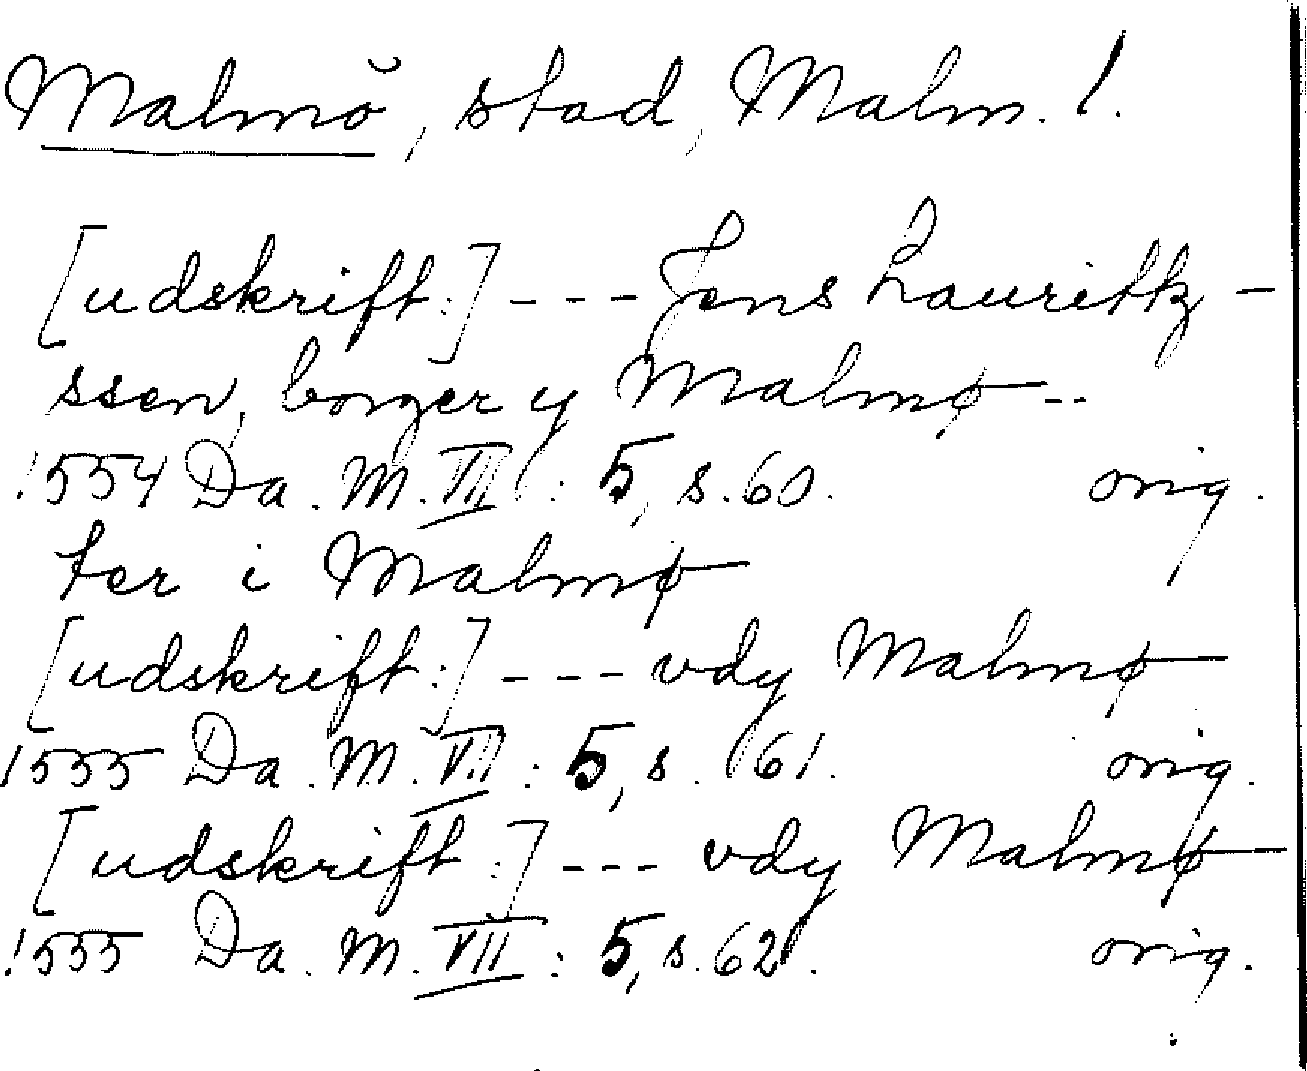 Malmö, stad, Malm. l.
[udskrift:] --- Jens Lauritz-
ssen, borger y Malmø --
1554 Da. M. VII : 5, s. 60. orig.
ter i Malmø
[udskrift:] --- vdy Malmø
1555 Da. M. VII : 5, s. 61. orig.
[udskrift:] --- vdy Malmø
1555 Da. M. VII : 5, s. 62. orig.